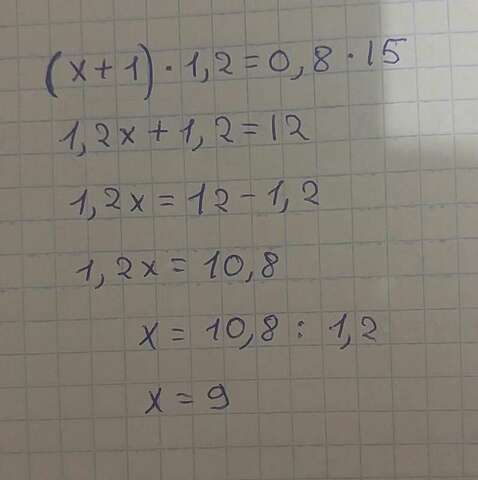 (x+1)·1,2=0,8·15
1,2x+1,2=12
1,2x=12-1,2
1,2x=10,8
x=10,8:1,2
x=9